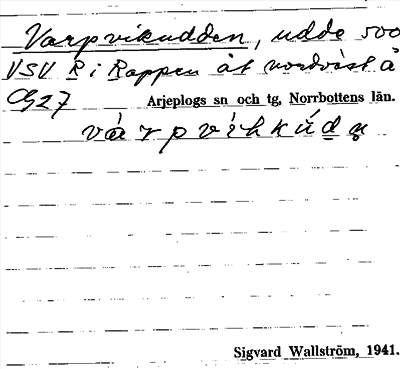 Varpvikudden, udde 500
VSV R i Rappen åt nordväst å
G27 Arjeplogs sn och tg, Norrbottens län.
Sigvard Wallström, 1941.